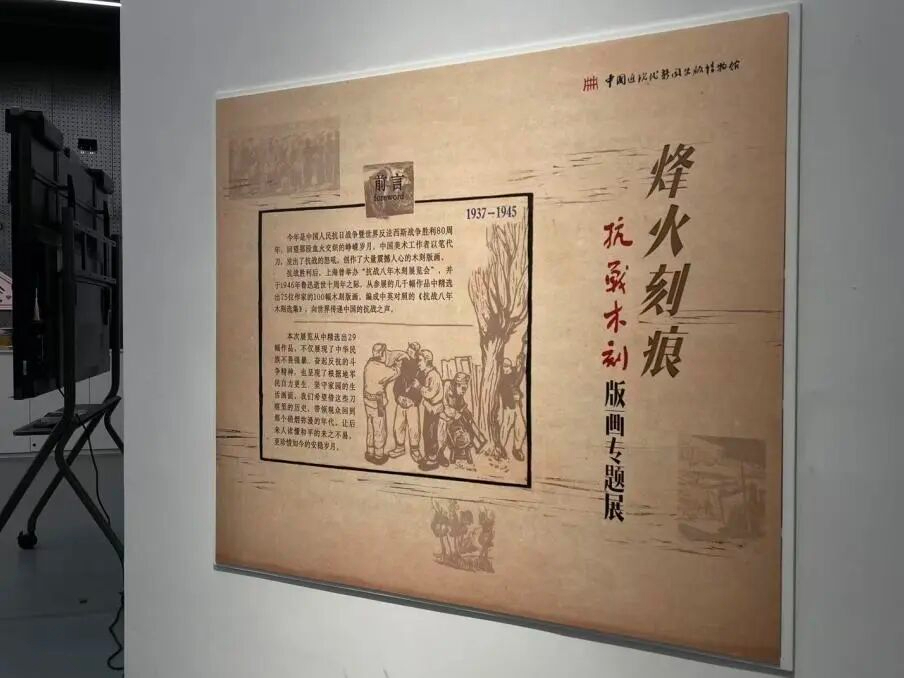 中国近现代新闻出版博物馆
烽火刻痕
抗战木刻
版画专题展
前言
foreword
1937-1945
今年是中国人民抗日战争暨世界反法西斯战争胜利80周
年，回望那段血火交织的峥嵘岁月，中国美术工作者以笔代
刀，发出了抗战的怒吼，创作了大量震撼人心的木刻版画。
抗战胜利后，上海曾举办“抗战八年木刻展览会”，并
于1946年鲁迅逝世十周年之际，从参展的几千幅作品中精选
出75位作家的100幅木刻版画，编成中英对照的《抗战八年
木刻选集》，向世界传递中国的抗战之声。
本次展览从中精选出29
幅作品，不仅展现了中华民
族不畏强暴、奋起反抗的斗
争精神，也呈现了根据地军
民自力更生、坚守家园的生
活画面。我们希望借这些刀
痕里的历史，带领观众回到
那个硝烟弥漫的年代，让后
来人读懂和平的来之不易，
更珍惜如今的安稳岁月。